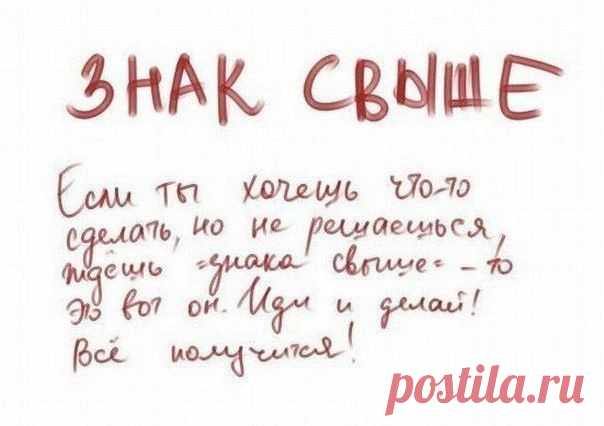 ЗНАК СВЫШЕ
Если ты хочешь что-то
сделать, но не решаешься,
ждёшь "знака свыше" – то
это вот он. Иди и делай!
Всё получится!
postila.ru